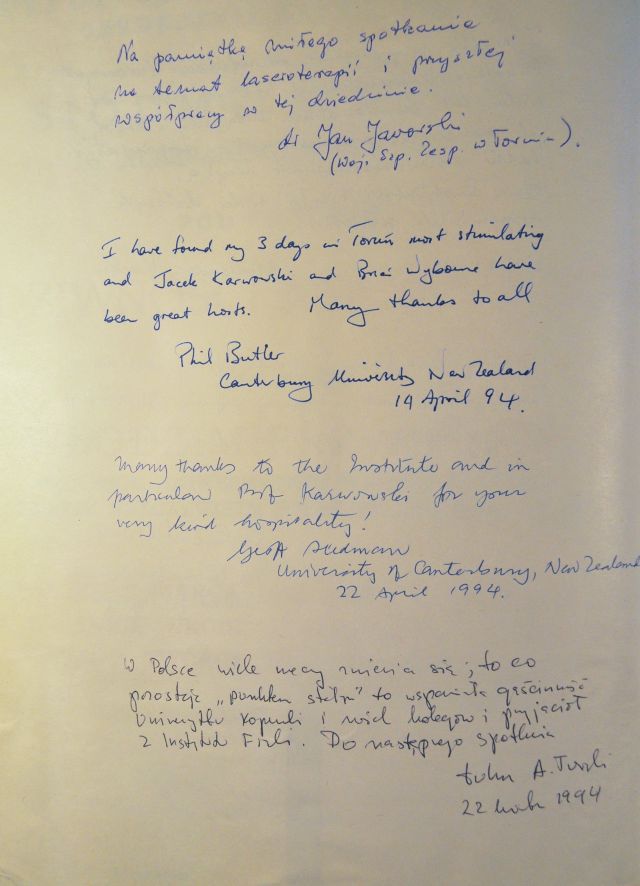 Na pamiątkę miłego spotkania
na temat laseroterapii i przyszłej
współpracy w tej dziedzinie.
dr Jan Jaworski
(Woj. Szp. Zesp. w Toruniu).
I have found my 3 days in Toruń most stimulating
and Jacek Karwowski and Brian Wybourne have
been great hosts. Many thanks to all
Phil Butler
Canterbury University New Zealand
19 April 94.
Many thanks to the Institute and in
particular Prof Karwowski for your
very kind hospitality!
Geoff Stedman
University of Canterbury, New Zealand
22 April 1994.
W Polsce wiele rzeczy zmienia się; to co
pozostaje „punktem stałym" to wspaniała gościnność
Uniwersytetu Kopernika i moich kolegów i przyjaciół
z Instytutu Fizyki. Do następnego spotkania
A.
22 1994